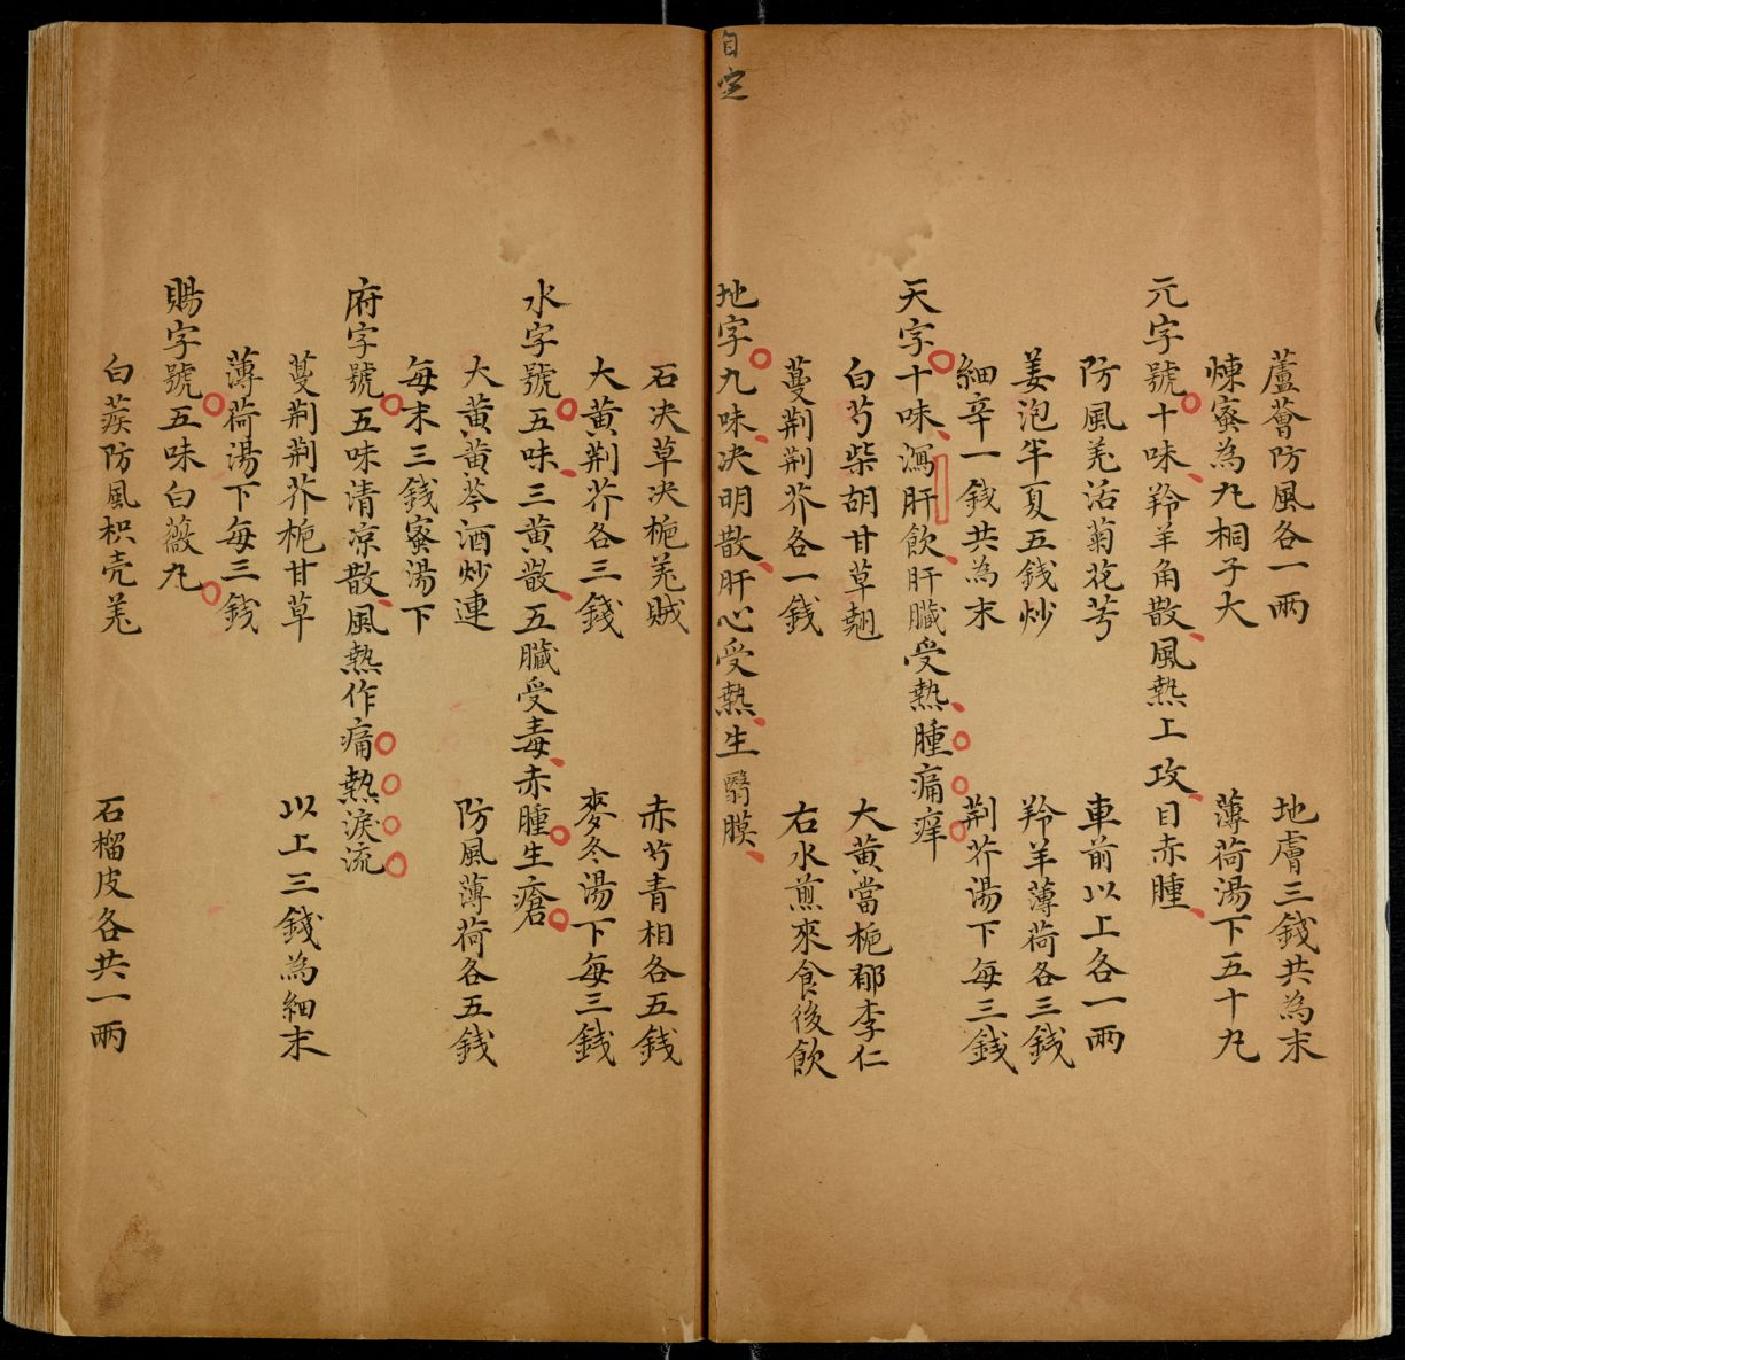 蘆薈防風各一兩　地膚三錢共為末
煉蜜為九桐子大　薄荷湯下五十九
元字號十味羚羊角散風熱上攻目赤腫
防風羌活菊花芎　車前以上各一兩
姜泡半夏五錢炒　羚羊薄荷各三錢
細辛一錢共為末　荆芥湯下每三錢
天字十味瀉肝飲肝臟受熱腫痛痒
白芍柴胡甘草翹　大黃當梔郁李仁
蔓荆荆芥各一錢　右水煎來食後飲
地字九味决明散肝心受熱生翳膜
石决草决梔羌賊　赤芍青相各五錢
大黃荆芥各三錢　麥冬湯下每三錢
水字號五味三黃散五臟受毒赤腫生瘡
大黃黃芩酒炒連　防風薄荷各五錢
每末三錢蜜湯下
府字號五味清凉散風熱作痛熱淚流
蔓荆荆芥梔甘草　以上三錢為細末
薄荷湯下每三錢
賜字號五味白薇九
白蒺防風枳壳羌　石榴皮各共一兩